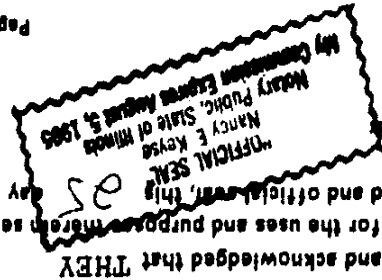 and acknowledged that THEY
for the uses and purposes therein se
d and official seal, this 25 day
"OFFICIAL SEAL"
Nancy E Keyse
Notary Public, State of Illinois
My Commission Expires August 5, 1995
Pag